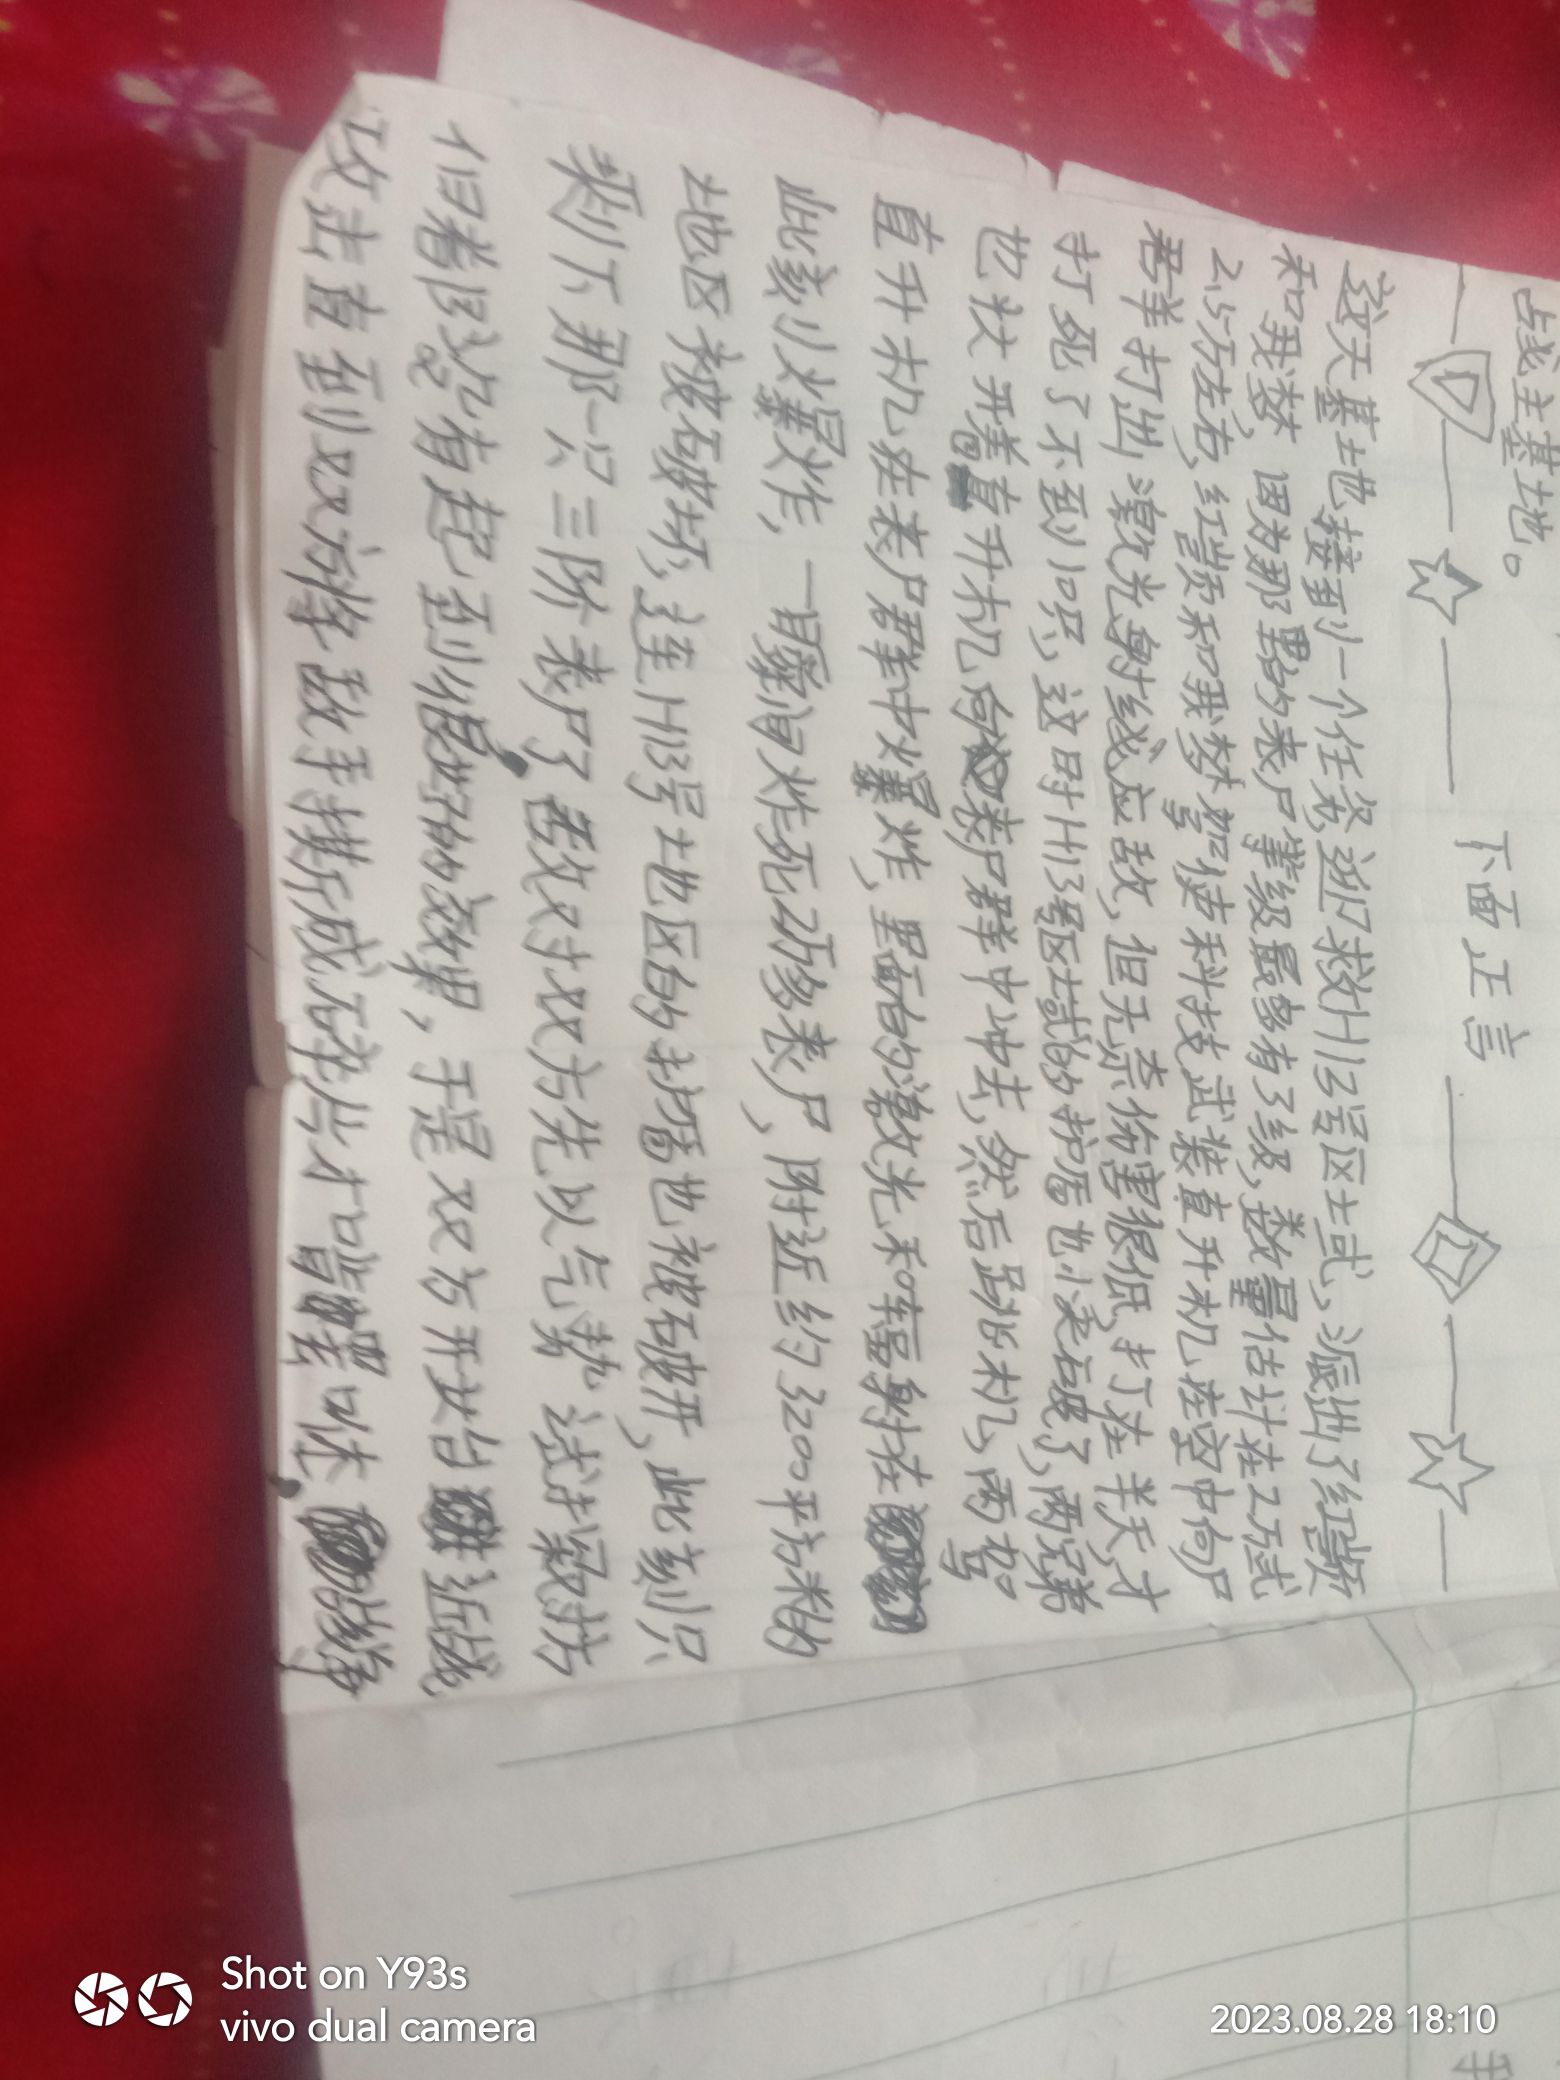 战主基地。
下面正言
这天基地接到一个任务,迎救H13号区域,派出了红颜
和我梦 因为那里的表尸等级最多有3级,数量估计在2万或
2.5万左右,红颜和我梦驾使科技武装直升机在空中向尸
君羊打出激光射线应敌,但无奈伤害很低,打在半天,才
打死了不到10只,这时H13号区域的护盾也小柔破了,两兄弟
也狀开着直升机向表尸群中冲去,然后跳机,两驾
直升机在表尸群中爆炸,里面的激光和辐射在
此刻爆炸,一瞬间炸死2万多表尸,附近约3200平方米的
地区被破坏,连H13号地区的护盾也被破开,此刻只
剩下那一只三阶表尸了 敌对双方先以气势试探
但看没有起到很好的效果,于是双方开始近战
攻击直到双方将敌手撕成碎片才
Shot on Y93s
vivo dual camera
2023.08.28 18:10